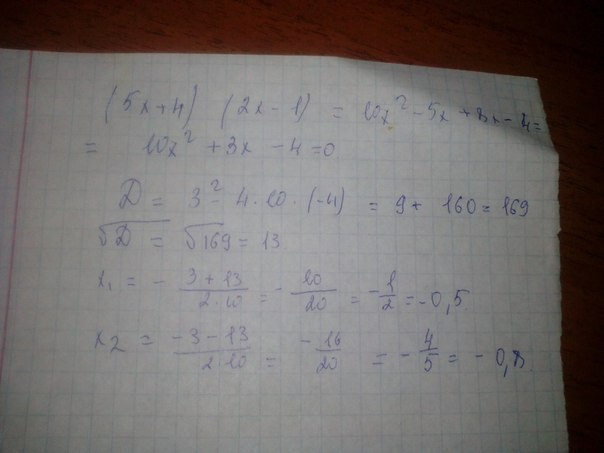 (5x+4) (2x-1) = 10x² - 5x + 8x - 4 =
= 10x² + 3x - 4 = 0
D = 3² - 4·10·(-4) = 9 + 160 = 169
√D = √169 = 13
x₁ = - \frac{3+13}{2·10} = - \frac{10}{20} = - \frac{1}{2} = -0,5.
x₂ = \frac{-3-13}{2·10} = - \frac{16}{20} = - \frac{4}{5} = -0,8.